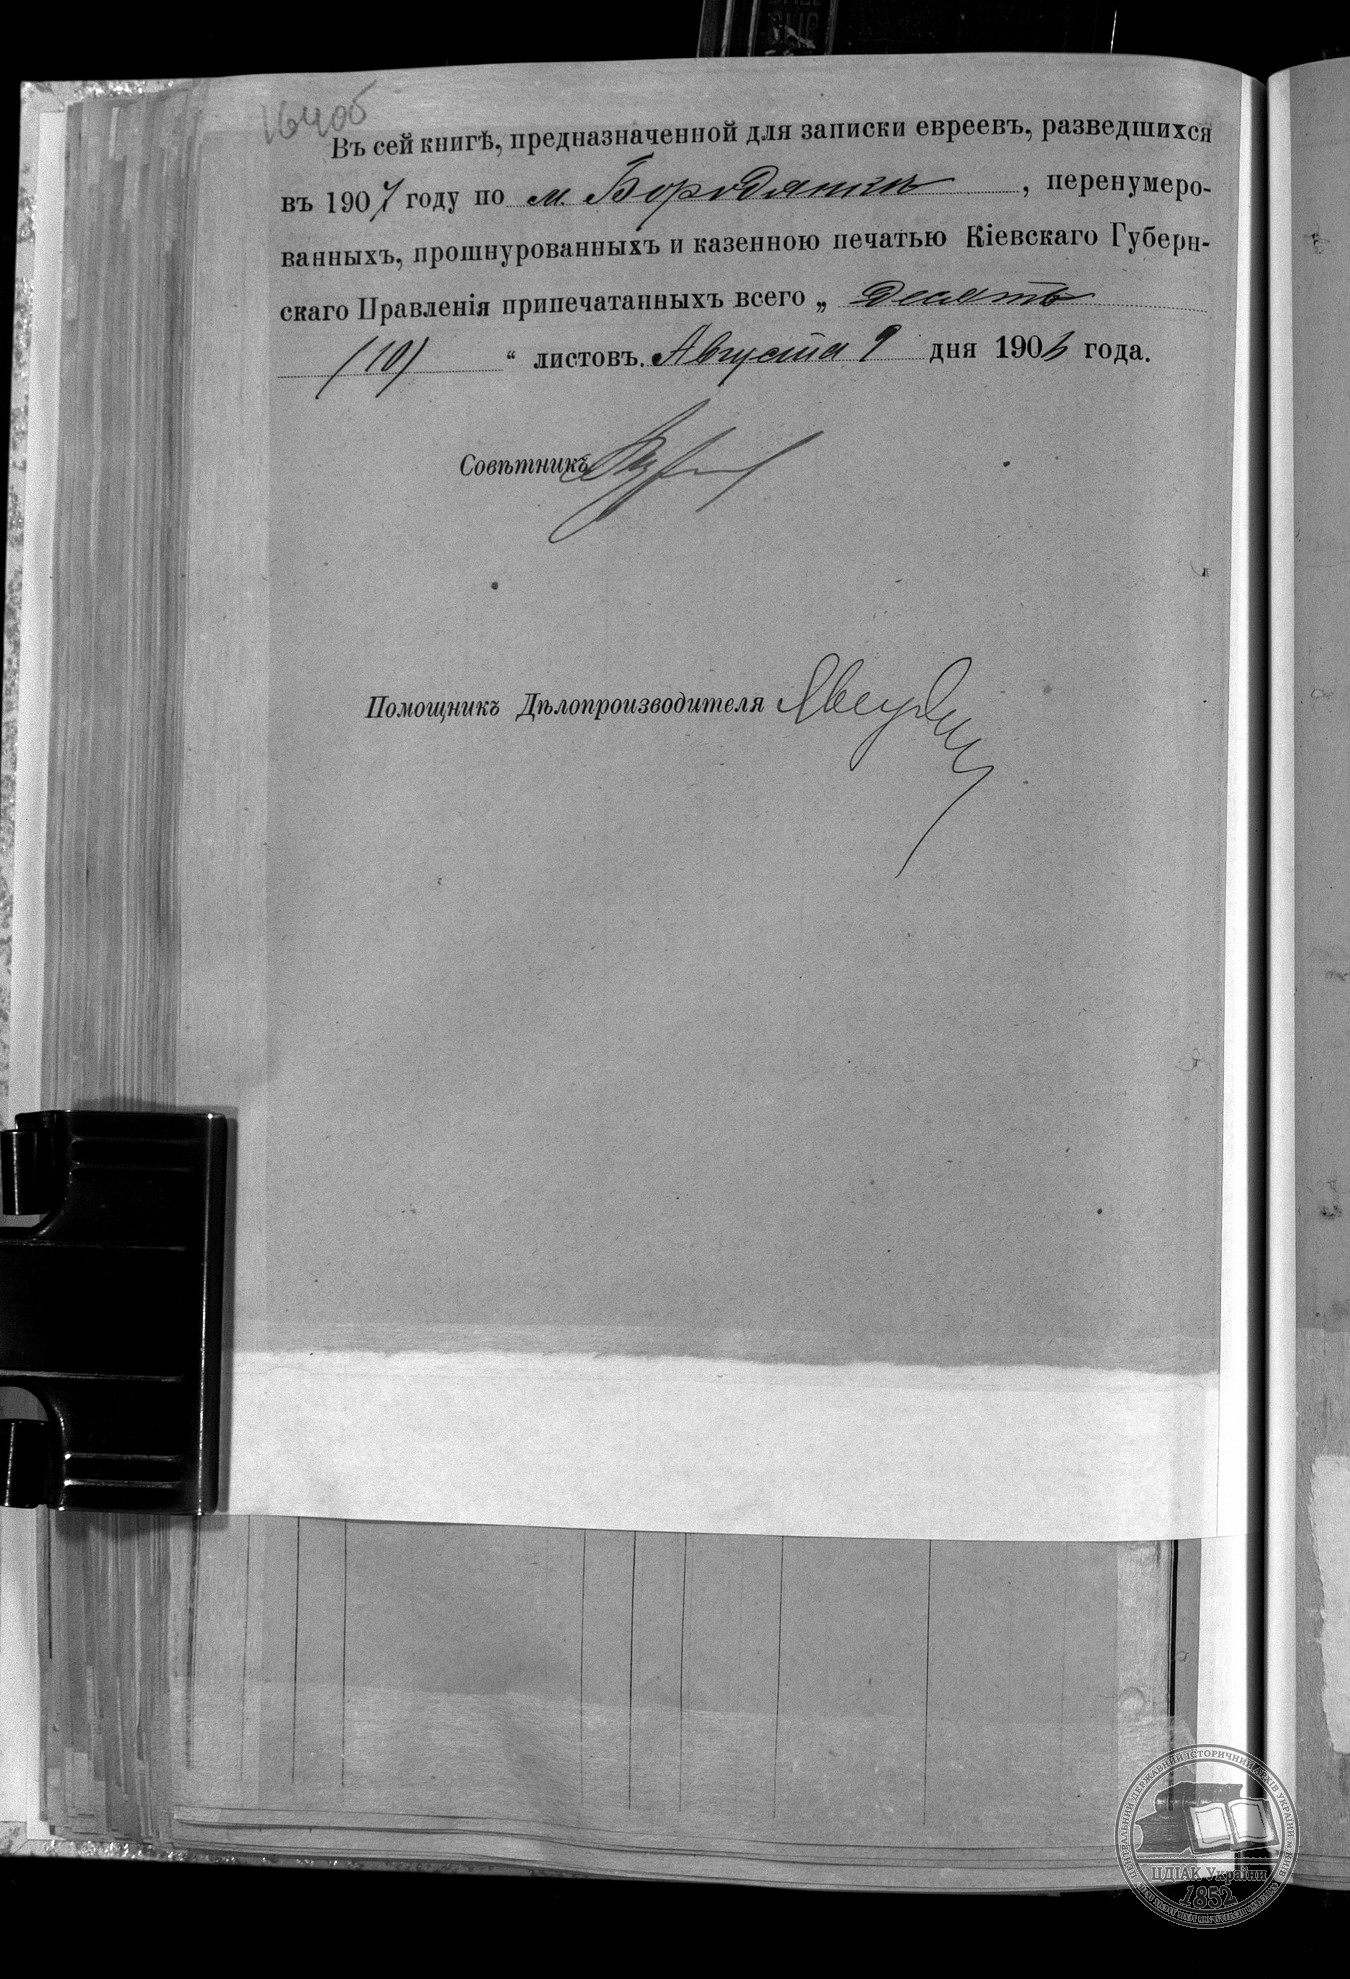 164об
Въ сей книгѣ, предназначенной для записки евреевъ, разведшихся
въ 1907 году по м. Бородянкѣ, перенумеро-
ванныхъ, прошнурованныхъ и казенною печатью Кіевскаго Губерн-
скаго Правленія припечатанныхъ всего „ Десять
(10) “ листовъ. Августа 9 дня 1906 года.
Совѣтникъ
Помощникъ Дѣлопроизводителя
ЦЕНТРАЛЬНИЙ ДЕРЖАВНИЙ ІСТОРИЧНИЙ АРХІВ УКРАЇНИ М. КИЇВ
ЦДІАК України
1852